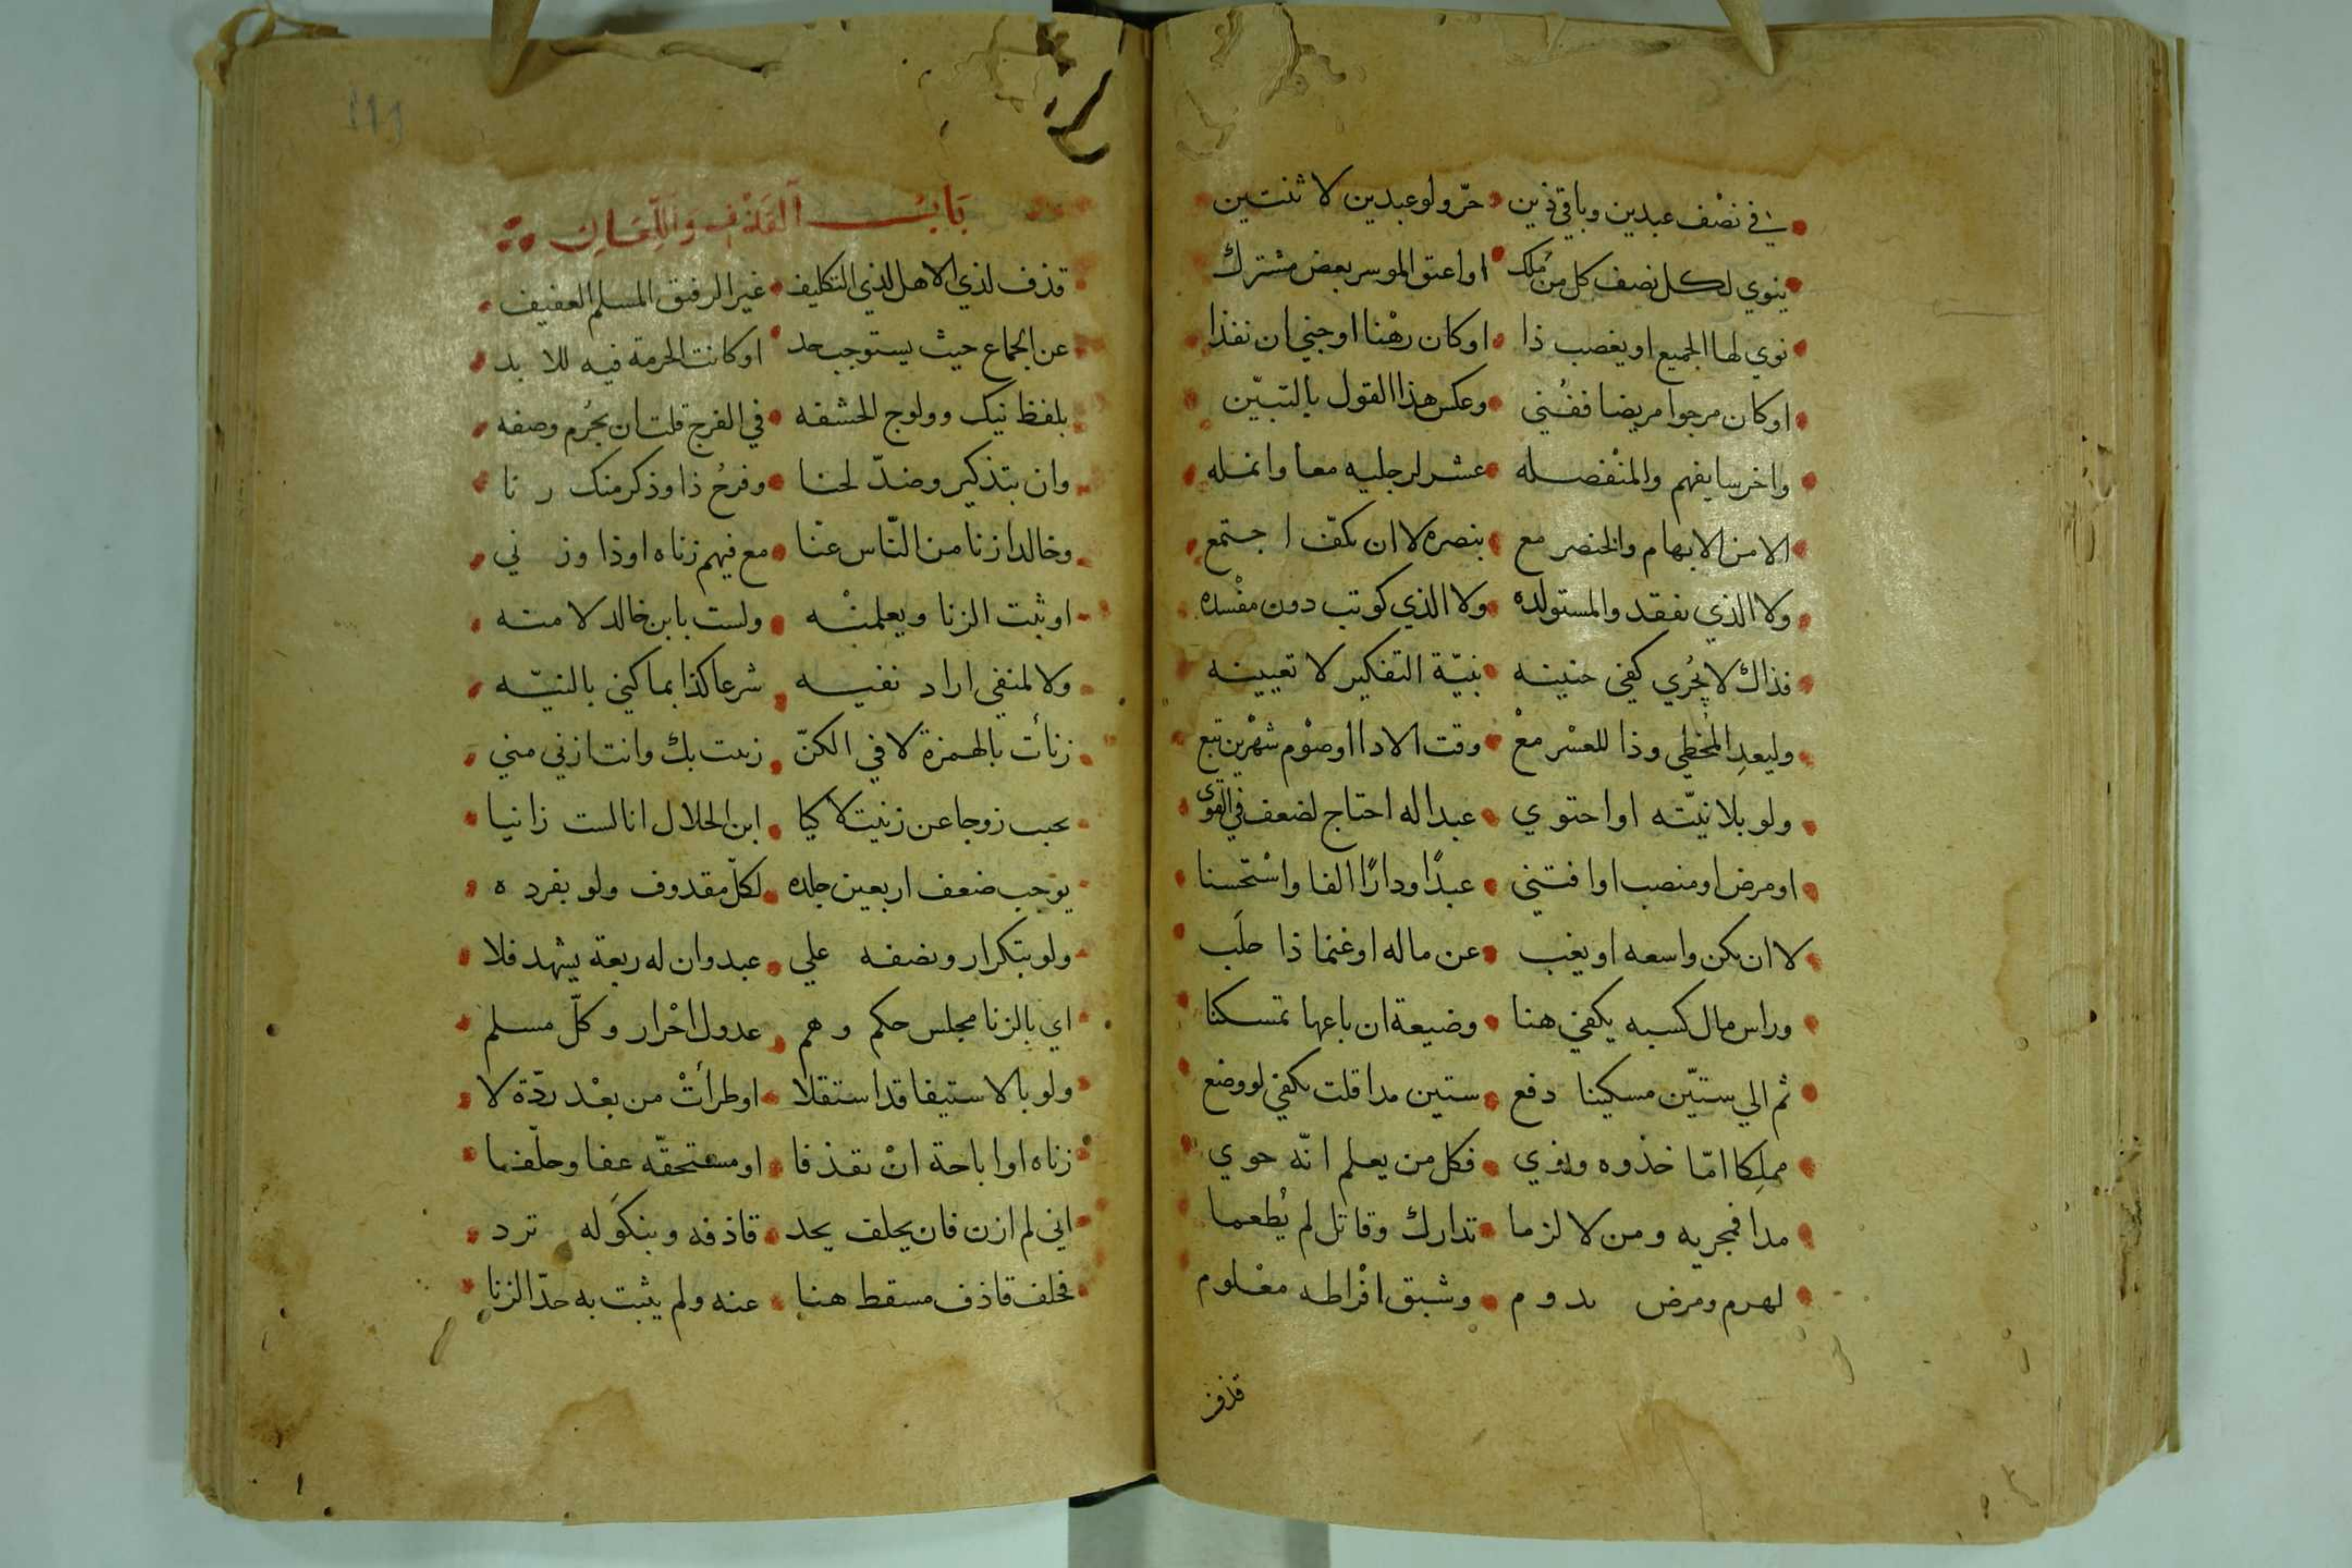 في نصْف عبدين وباقي ذين حرّ ولو عبدين لا ثنتين
ينوي لكل نصف كل من مُلك او اعتق الموسر بعض مشترك
نوي لها الجميع او يغصب ذا او كان رهْنا او جني ان نفذا
او كان مرجوا مريضا ففُني وعكس هذا القول بالتبيّن
واخرسا يفهم والمنْفصله عشر لرجليه معا وانمله
الا من الابهام والخنصر مع بنصره لا ان بكفّ اجتمع
ولا الذي يفقد والمستولده ولا الذي كوتب دون مفْسده
فذاك لا يُجري كفي حنينه بنيّة التفكير لا تعيينه
وليعدِ المُخطي وذا للعسْر معْ وقت الادا او صوْم شهْرين تبع
ولو بلا نيّته او احتوي عبدا له احتاج لضعف في القوى
او مرض او منصب او افتني عبدًا ودارًا الفا واسْتحسنا
لا ان يكن واسعه او يغب عن ماله او غنما ذا حلَب
وراس مال كسبه يكفي هنا وضيعة ان باعها تمسكنا
ثم الي ستيّن مسكينا دفع ستين مدا قلت يكفي لو وضع
مملِكا امّا خذوه ونوي فكل من يعلم انّه حوي
مدا فمجريه ومن لا لزما تدارك وقاتل لم يُطعما
لهرم ومرض يدوم وشبق افْراطه معْلوم
قذف
١١١
بَابُ القَذْفِ وَاللِّعَانِ
قذف لذي الاهل لذي التكليف غير الرفيق المسلم العفيف
عن الجماع حيث يستوجب حد او كانت الحرمة فيه للابد
بلفظ نيك وولوج الحشفه في الفرج قلت ان يجُرم وصفه
وان بتذكير وضدّ لحنا وفرحُ ذا وذكر منك رنا
وخالد ازنا من النّاس عنّا مع فيهم زناه او ذا وزني
او ثبت الزنا ويعلمنْه ولست بابن خالد لا منه
ولا لمنفي اراد نفيه شرعا كذا بما كني بالنيّه
زنأت بالهمزة لا في الكنّ زنت بك وانت ازني مني
بحب زوجا عن زنيت لا كيا ابن الحلال انا لست زانيا
يوجب ضعف اربعين جلده لكلّ مقدوف ولو بفرده
ولو بتكرار ونصفه علي عبد وان له ربعة يشهد فلا
اي بالزنا مجلس حكم وهم عدول احْرار وكلّ مسلم
ولو بالاستيفا قد استقلا او طرأتْ من بعْد ردّة لا
زناه او اباحة انْ يقذفا او مستحقّه عفا وحلّفا
اني لم ازن فان يحلف يحد قاذفه وبنكوَله ترد
فحلف قاذف مسقط هنا عنه ولم يثبت به حدّ الزنا